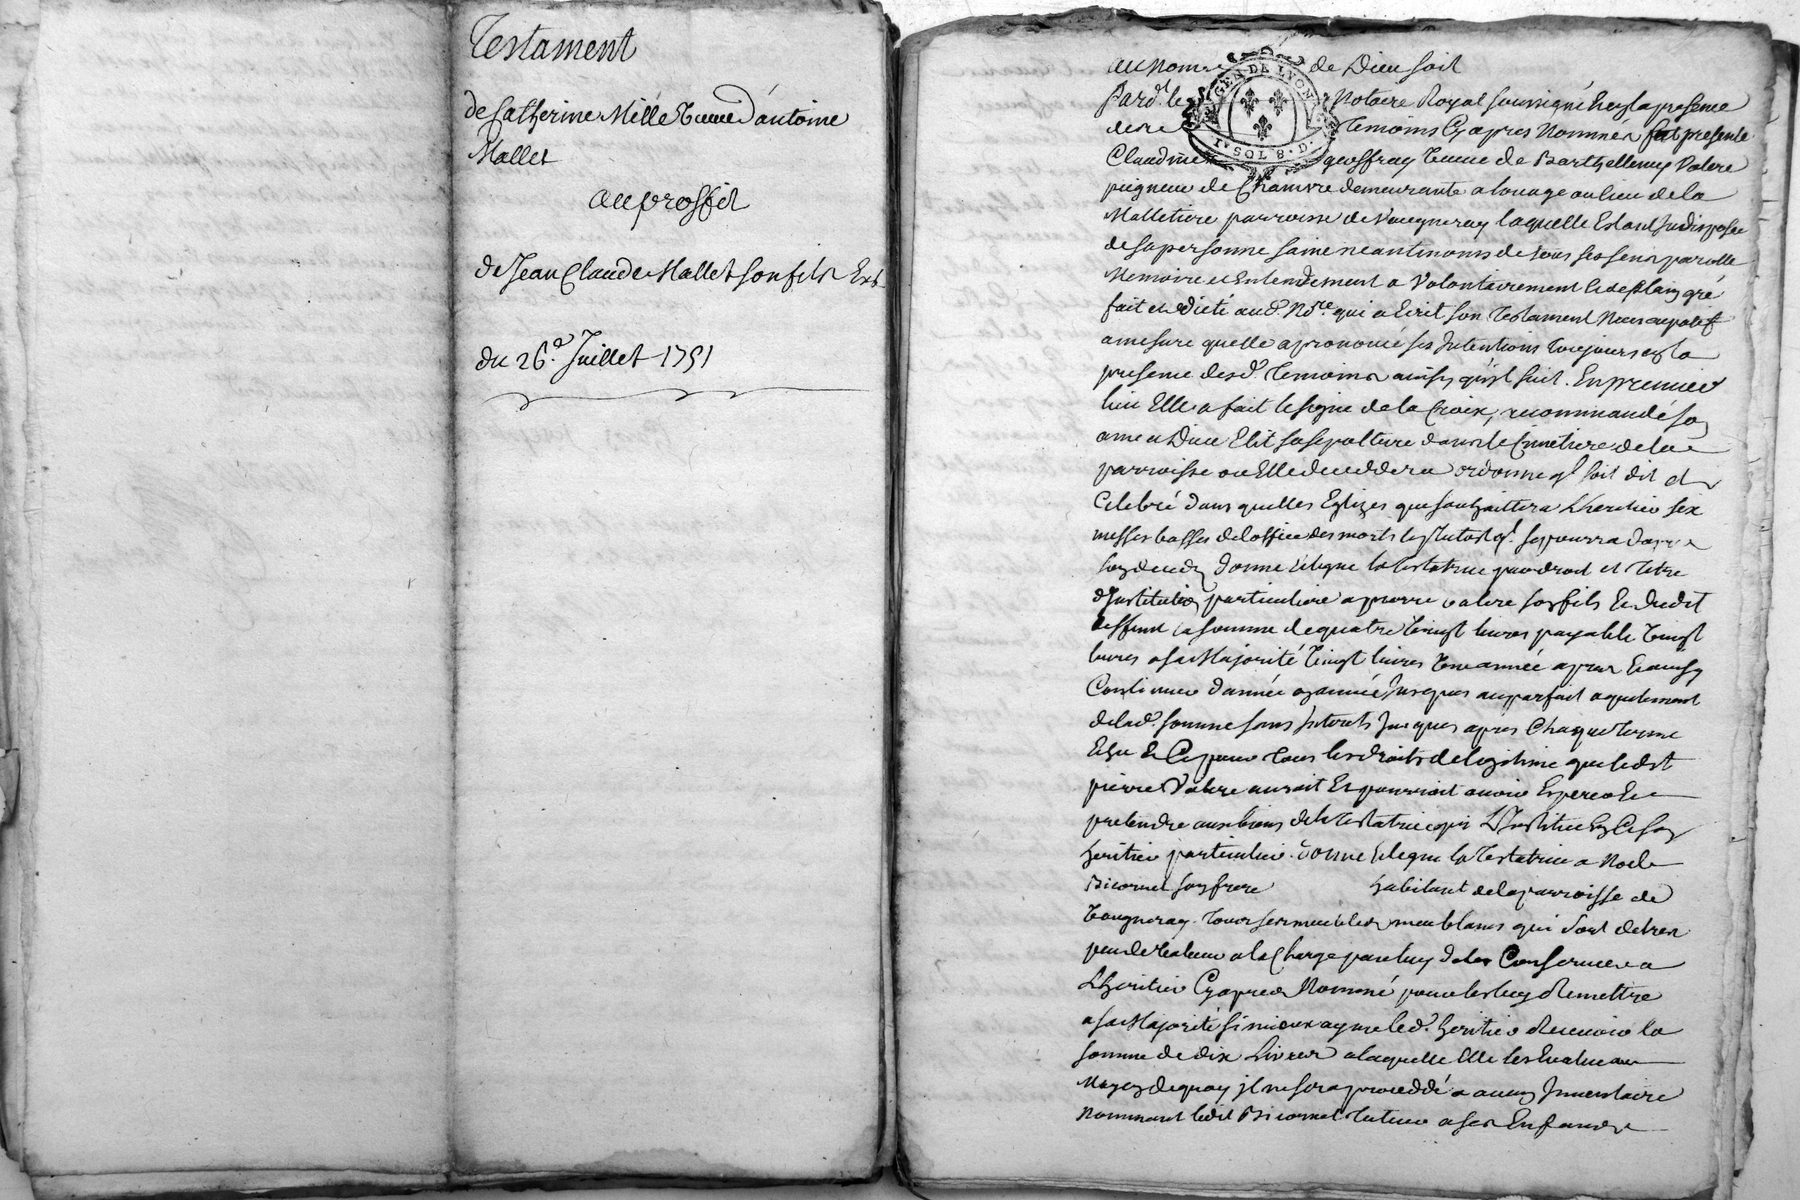 Testament
de Catherine Mille veuve d'antoine
Mallet
au proffit
de Jean Claude Mallet son fils Et
du 26.e Juillet 1751
au nom de Dieu soit
GEN DE LYON
1. SOL 8. D.
Pard.t le Notaire Royal soussigné En la presence
de temoins Cy apres Nommés fut presente
Claudine geoffray veuve de Barthellemy Valere
peigneur de Chanvre demeurante a louage au lieu de la
Malletiere parroisse de Vaugneray laquelle Estant Indisposée
de sa personne saine neantmoins de tous ses sens parolle
Memoire et Entendement a Volontairement et de plain gré
fait et dicté aud. No.re qui a Ecrit son Testament Nuncupatif
a mesure quelle a prononcé ses Intentions toujours En la
presence desd. temoins ainsy qu'il suit. En premier
lieu Elle a fait le signe de la Croix, recommandé so
ame a Dieu Elit sa sepulture dans le Cimetiere de la
parroisse ou Elle deceddera ordonne ql. soit dit et
Celebré dans quelles Eglizes que souhaittera Lheritier six
messes basses de loffice des morts le plutost ql. se pourra
son deces donne et legue la testatrice par droit et titre
d'Institution particuliere a pierre valere son fils Et dudit
deffunt la somme de quatre vingt livres payable vingt
livres a sa Majorité vingt livres une année apres Et ainsy
Continuer d'année en année Jusques au parfait aquitement
de lad. somme sans Interets Jusques apres Chaque terme
Echu Et Ce pour tous les droits de legitime que ledit
pierre Valere auroit Et pourroit avoir Esperer Et
pretendre aux biens de la Testatrice qui L'Institue En Ce son
heritier particulier. donne Et legue la Testatrice a Noel
Bicornet son frere habitant de la parroisse de
Vaugneray tous ses meubles meublans qui sont de tres
peu de valeur a la Charge par luy de les Conserver a
Lheritier Cy apres Nommé pour les luy Remettre
a sa Majorité si mieux ayme led. heritier Recevoir la
somme de dix Livres a laquelle Elle les Evalue au
Moyen de quoy il ne sera proceddé a aucun Inventaire
Nommant ledit Bicornet tuteur a ses Enfants